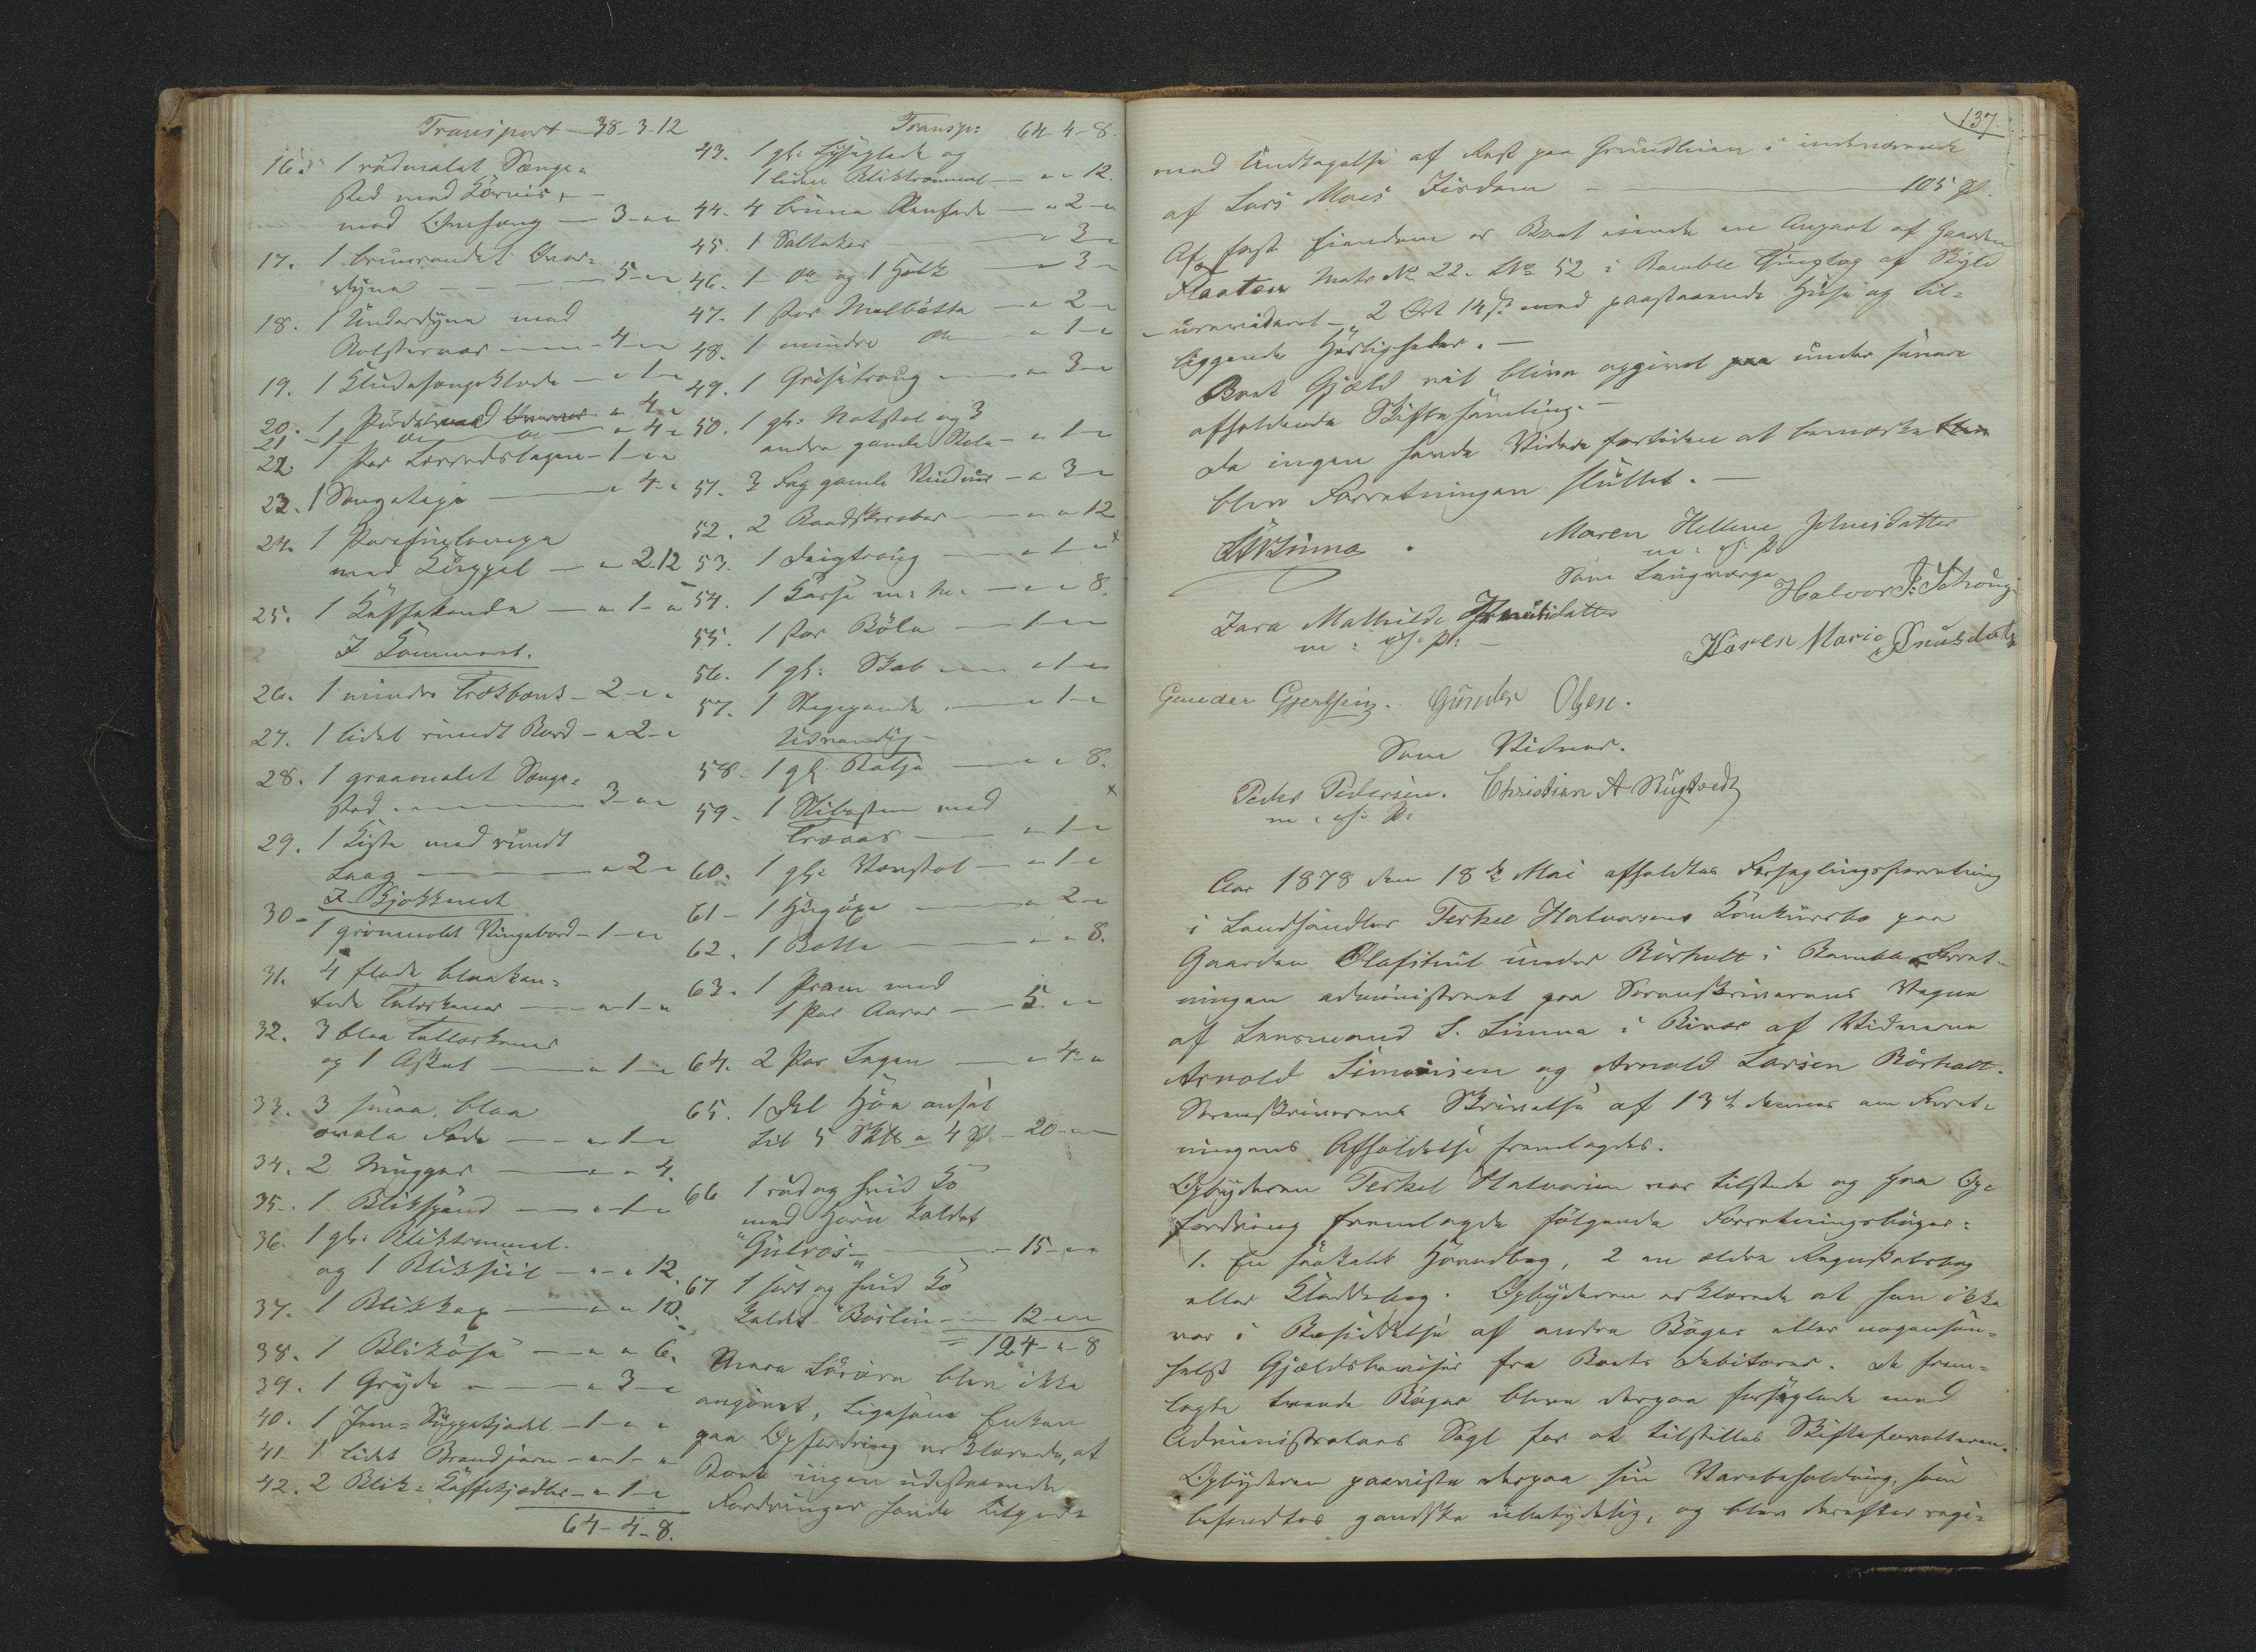 Transport — 38-3-12
16. 1 rödmalet Senge-
sted med Körnis,
med Omhang — 3 - " - "
17. 1 brunrandet Over-
dyne — 5 - " - "
18. 1 Underdyne med
Bolstervar — " - 4 - "
19. 1 Kludesengeklæde — " - 1 - "
20. 1 Pude med — " - 4 - "
21. 1 do do — " - 4 - "
22. 1 Par Lerredslagen — 1 - " - "
23. 1 Sengetæpe — " - 4 - "
24. 1 Parafinlampe
med Kuppel — " - 2-12
25. 1 Kaffekande — " - 1 - "
I Kammeret.
26. 1 mindre Trækbænk — 2 - " - "
27. 1 lidet rundt Bord — " - 2 - "
28. 1 graamalet Senge-
sted — 3 - " - "
29. 1 Kiste med rundt
Laag — " - 2 - "
I Kjökkenet
30. 1 grönmalet Klingebord — 1 - " - "
31. 4 flade blaakan-
tede Talerkener — " - 1 - "
32. 3 blaa Tallerkener
og 1 Asket — " - 1 - "
33. 3 smaa blaa
ovale Fade — " - 1 - "
34. 2 Mugger — " - " - 4.
35. 1 Blikspand — " - 1 - "
36. 1 gl: Bliktrommel
og 1 Bliksiil — " - " - 12.
37. 1 Blikkop — " - " - 10.
38. 1 Bliköse — " - " - 6.
39. 1 Gryde — " - 3 - "
40. 1 Jern-Suppekjedel — 1 - " - "
41. 1 lidet Brandjern — " - 1 - "
42. 2 Blik-Kaffekjedler — " - 1 - "
64-4-8.
Transp: 64-4-8.
43. 1 gl: Lyseplade og
1 liden Bliktrommel — " - " 12.
44. 4 brune Steenfade — " - 2 - "
45. 1 Saltekar — " - 3 - "
46. 1 do og 1 Holk — " - 3 - "
47. 1 stor Melbötte — " - 2 - "
48. 1 mindre do — " - 1 - "
49. 1 Grisetroug — " - 3 - "
50. 1 gl: Natstol og 3
andre gamle Stole — " - 1 - "
51. 3 Fag gamle Vinduer — " - 3 - "
52. 2 — " - " 12
53. 1 Deigtroug — " - 1 - "
54. 1 Kasse m: m: — " - " 8.
55. 1 stor Böle — 1 - " - "
56. 1 gl: Skab — " - 1 - "
57. 1 Stegepande — " - 1 - "
Udvendig
58. 1 gl: Balje — " - " 8.
59. 1 Slibesten med
Træaas — " - 1 - "
60. 1 gl: Vævstol — " - 1 - "
61. 1 Hugöxe — " - 2 - "
62. 1 Bötte — " - " 8.
63. 1 Pram med
1 Par Aarer — 5 - " - "
64. 2 Par Lagen — " - 4 - "
65. 1 Del Höe ansat
til 5 Sk℔ a 4 Spd — 20 - " - "
66 1 röd og hvid Ko
med Horn kaldet
"Gulros" — 15 - " - "
67 1 sort og hvid Ko
kaldt "Boslin" — 12 - " - "
= 124 - " - 8
Mere Lösöre blev ikke
angivet, ligesom Enken
paa Opfordring erklærede, at
Boet ingen udestaaende
Fordringer havde tilgode
137.
med Undtagelse af Rest paa Grundleien i indeværende
af Lars Moes Fisdam — 105 Spd.
Af fast Eiendom er Boet eiende en Anpart af Gaarden
Flaaten Matr No 22. LNo 52 i Bamble Thinglag af Skyld
urevideret 2 Ort 14 ß med paastaaende Huse og til-
liggende Herligheder.
Boet Gjæld vil blive opgivet under senere
afholdende Skiftesamling.
Da ingen havde Videre fortiden at bemærke
blev Forretningen sluttet.
LSinna.
Maren Hellene Johnsdatter
m: f: P:
Som Laugværge
Halvor J: Tohoug
Zara Mathilde Knutsdatter
m: f: P:
Karen Marie Knusdatter
Gunder Gjertsen. Gunder Olsen.
Som Vidner.
Peder Pedersen. Christian A Rugtvedt
m: f: P:
Aar 1878 den 18de Mai afholdtes Forseglingsforretning
i Landhandler Terkel Halvorsens Konkursbo paa
Gaarden Olafstul under Rörholt i Bamble. Forret-
ningen administreret paa Sorenskriverens Vegne
af Lensmand L. Sinna i Bivær af Vidnerne
Arnold Simonsen og Arnold Larsen Rörholt.
Sorenskriverens Skrivelse af 13de dennes om Forret-
ningens Afholdelse fremlagdes.
Opbyderen Terkel Halvorsen var tilstede og paa Op-
fordring fremlagde fölgende Forretningsböger:
1. En saakaldt Hovedbog, 2 en ældre Regnskabsbog
eller Kladdebog. Opbyderen erklærede at han ikke
var i Besiddelse af andre Böger eller nogensom-
helst Gjældsbeviser fra Boets Debitorer. De frem-
lagte tvende Böger bleve derpaa forseglede med
Administrators Segl for at tilstilles Skifteforvalteren.
Opbyderen paaviste derpaa sin Varebeholdning, som
befandtes gandske ubetydelig, og blev derefter regi-